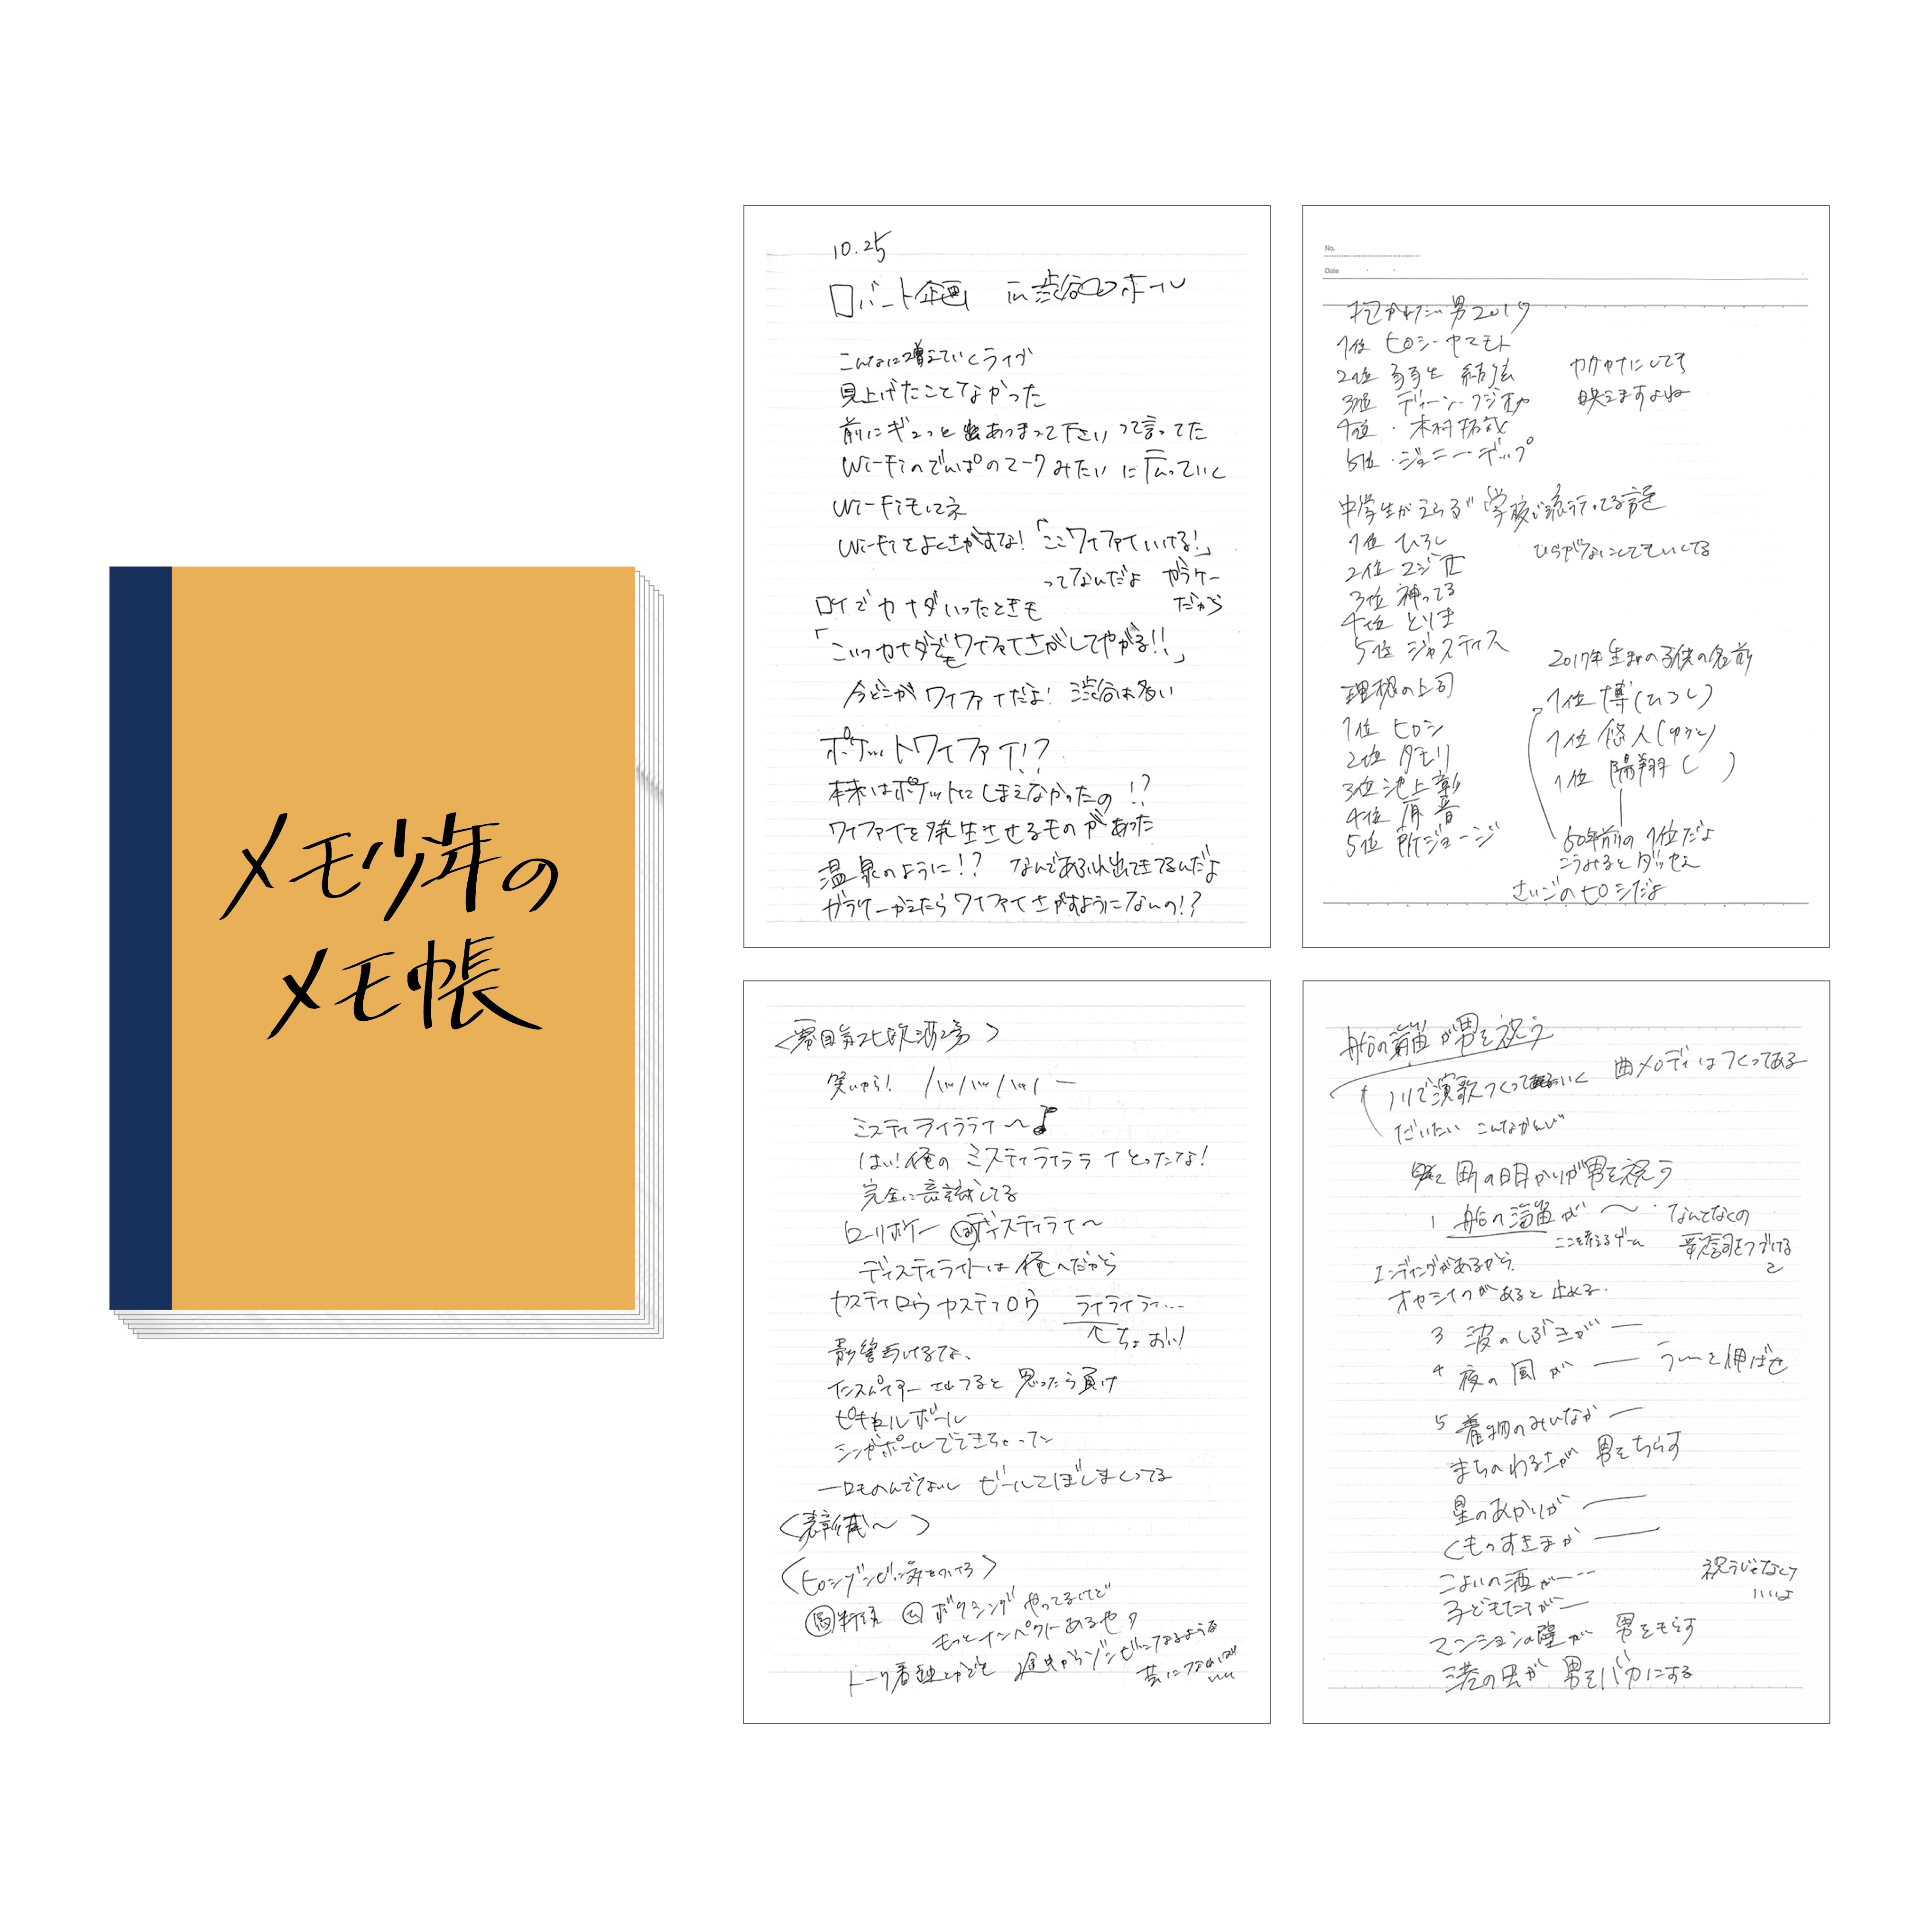 メモ少年の
メモ帳
10.25
ロバート企画 in 渋谷CCホール
こんなに増えていくライブ
見上げたことてなかった
前にギュっとあつまって下さいって言ってた
Wi-Fiのでんぱのマークみたいに広っていく
Wi-Fiもってネ
Wi-Fiをよくさがすな!「ここワイファイいける!」
ってなんだよ ガラケー
だから
ロケでカナダいったときも
「こいつカナダでもワイファイさがしてやがる!!」
今どこがワイファイだよ! 渋谷は多い
ポケットワイファイ!?
本来はポケットにしまえなかったの!?
ワイファイを発生させるものがあった
温泉のように!? なんであふれ出てきてるんだよ
ガラケーかえたらワイファイさがすようにないの!?
No.
Date
抱かれたい男2017
1位 ヒロシ・ヤマモト
2位 羽生 結弦
カタカナにしても
映えますよね
3位 ディーン・フジオカ
4位・木村拓哉
5位・ジョニー・デップ
中学生がえらぶ 学校で流行ってる言
1位 ひろし
ひらがなにしてもいしてる
2位 マジ卍
3位 神ってる
4位 とりま
5位 ジャスティス
理想の上司
1位 ヒロシ
2位 タモリ
3位 池上彰
4位
5位 所ジョージ
2017年生まれの子供の名前
1位 博(ひろし)
1位 悠人(ゆうと)
1位 陽翔( )
60年前の1位だよ
こうみるとダッせえ
さいごのヒロシだよ
笑いから! ハッハッハッハー
ミスティライラライ〜♪
はい!俺のミスティライラライとったな!
完全に意識してる
ディスティライ〜
ディスティライトは俺へだから
カスティロウ カスティロウ ライライライ...
↑ちょおい!
影響うけるな、
インスパイアーされてると思ったら負け
ピキャルボール
シンガポールでできちゃってン
一口ものんでないし ビールてぼしまくってる
〈ヒロシゾンビに命をかける〉
ボクシングやってるけど
もっとインパクトあるや
途中からゾンビになるような
芸になればいい
船の海笛が男を祝う
曲メロディはつくってある
ノリで演歌つくっていく
だいたい こんなかんじ
町の明かりが男を祝う
1 船の海笛が〜 なんてなくの
ここを考えるゲーム
歌詞をつづける
2
エンディングがあるから、
オカシイのがあると止める.
3 波のしぶきが―
4 夜の風が ― う〜と伸ばせ
5 着物のみいなが―
まちのわるさが 男をちらす
星のあかりが―
くものすきまが―
こよいの酒が---
祝うじゃなくて
いいよ
子どもたちが―
マンションの壁が 男をもらす
港の虫が 男をバカにする